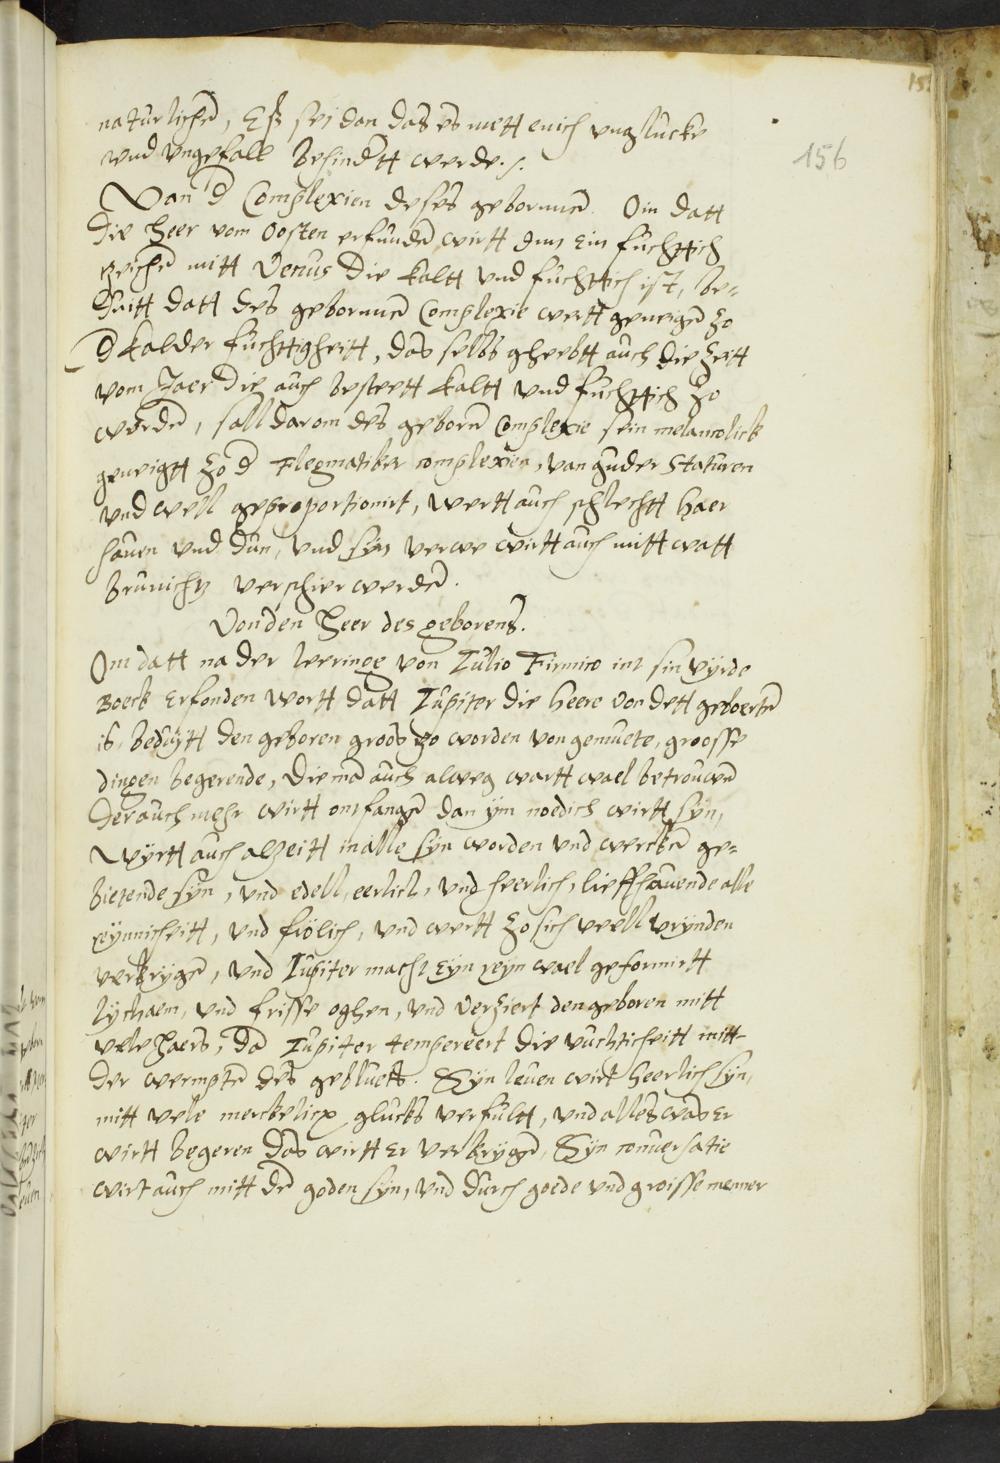 156
naturlichē, Eß sei dan das es mett enich unglucke
und ungefall behindtt werde./.
Van d Complexien deses gebornnē. Om datt
Die heer vom Oosten erfundē wirtt ein fuchttich
zeichē mitt Venus die kaltt und fuchttich ist, be-
duitt datt des gebornnē Complexie wertt geneigē zo
d kalder fuchttigheitt, das selbs auch die Zeitt
vom Jaer die auch kaltt und fuchttich zo
werdē, sall darom des geborē Complexie sein melancolick
geneigtt zo d Flegmatiker complexien, van guder Staturen
und well geproportionirt, wertt auch schlechtt haer
hauen und dun, und syn verwe wirtt auch mitt watt
brunichs verschier werdē.
Von den heer des geborens.
Om datt na der leeringe von Julio Firmico int sin vyrde
Boeck erfonden wortt datt Jupiter die heere von dett geboertē
is, beduytt den geboren groos zo worden von gemuete, groosse
dingen begerende, diemā auch alweg wartt wael betrouwē
der auch mehr wirtt ontfangē dan ym noedich wirtt syn,
Wyrtt auch alzeitt in alle syn worden und werckē ge-
bietende syn, und edell, eerlich, und heerlich, lieffhauende alle
reynnicheitt, und frölich, und wertt zo sich veell vrynden
verkrygē, und Jupiter macht eyn reyn wael geformirtt
lychaem, und frisse oghen, und verziert den geboren mitt
vele haers, da Jupiter tempereert die vuchticheitt mitt
der wermptē des gebluets. Syn leuen wirt heerlich syn,
mitt vele merckelicx glucks verfultt, und alles was er
wirtt begeren das wirtt er verkrygē, Syn conversatie
wirt auch mitt dē goden syn, und durch goede und groisse menner